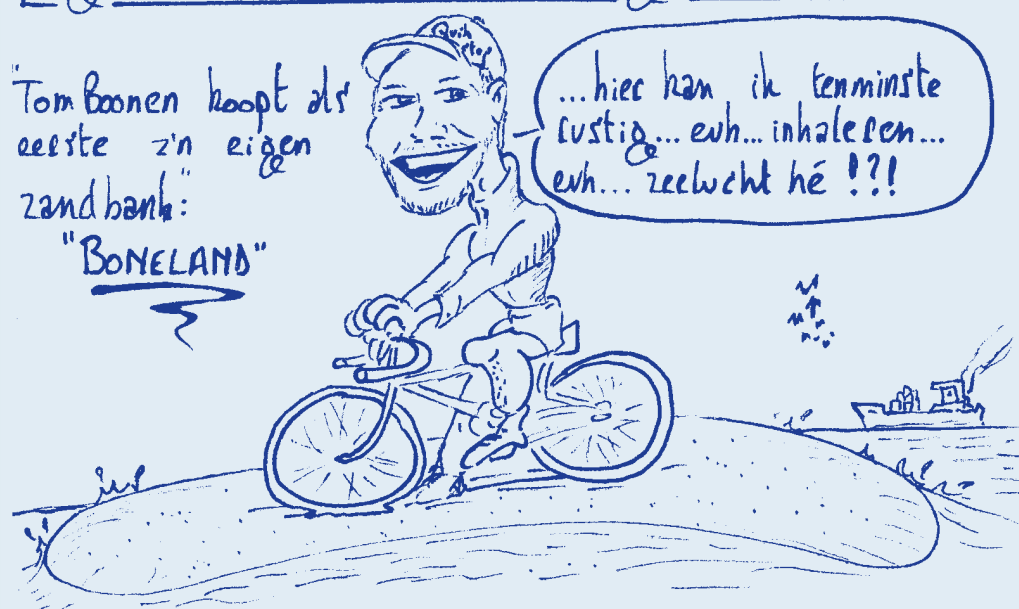 "Tom Boonen koopt als
eerste z'n eigen
zandbank:"
"BONELAND"
Quik
step
...hier kan ik tenminste
rustig... euh... inhaleren...
euh... zeelucht hé !?!